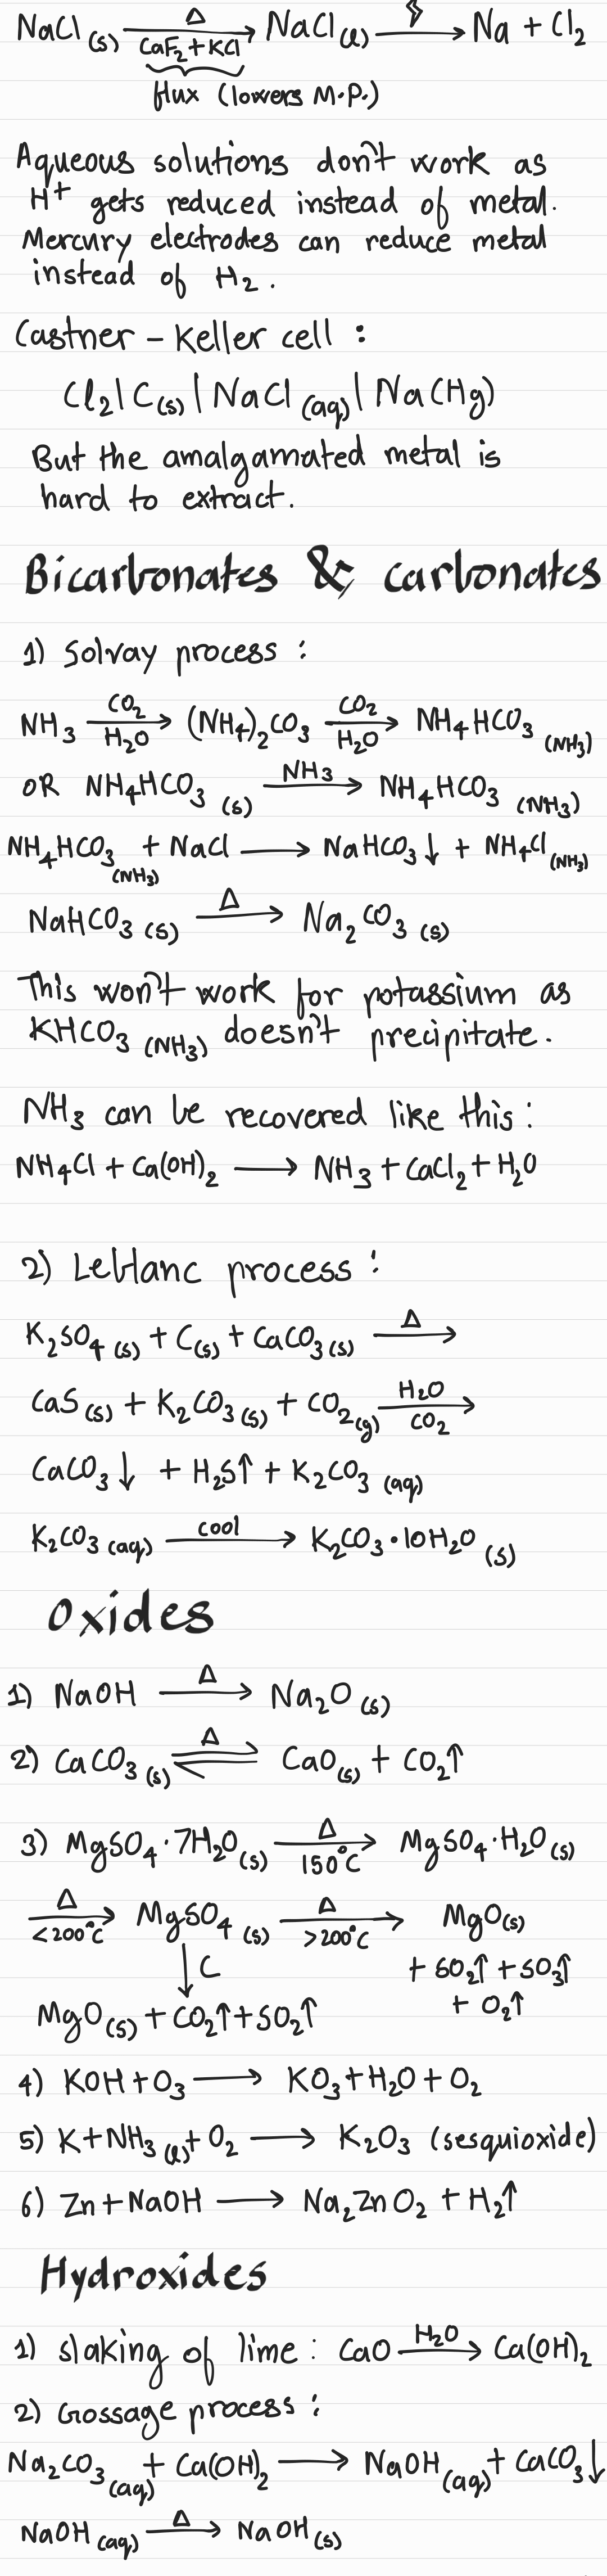 NaCl (s) —Δ / CaF₂ + KCl→ NaCl (l) —⚡→ Na + Cl₂
flux (lowers M.P.)
Aqueous solutions don't work as
H⁺ gets reduced instead of metal.
Mercury electrodes can reduce metal
instead of H₂.
Castner - Keller cell :
Cl₂ | C(s) | NaCl (aq) | Na(Hg)
But the amalgamated metal is
hard to extract.
Bicarbonates & carbonates
1) Solvay process :
NH₃ —CO₂ / H₂O→ (NH₄)₂CO₃ —CO₂ / H₂O→ NH₄HCO₃ (NH₃)
OR NH₄HCO₃ (s) —NH₃→ NH₄HCO₃ (NH₃)
NH₄HCO₃ (NH₃) + NaCl → NaHCO₃↓ + NH₄Cl (NH₃)
NaHCO₃ (s) —Δ→ Na₂CO₃ (s)
This won't work for potassium as
KHCO₃ (NH₃) doesn't precipitate.
NH₃ can be recovered like this :
NH₄Cl + Ca(OH)₂ → NH₃ + CaCl₂ + H₂O
2) Leblanc process :
K₂SO₄ (s) + C(s) + CaCO₃ (s) —Δ→
CaS (s) + K₂CO₃ (s) + CO₂ (g) —H₂O / CO₂→
CaCO₃↓ + H₂S↑ + K₂CO₃ (aq)
K₂CO₃ (aq) —cool→ K₂CO₃·10H₂O (s)
Oxides
1) NaOH —Δ→ Na₂O (s)
2) CaCO₃ (s) ⇌Δ CaO(s) + CO₂↑
3) MgSO₄·7H₂O (s) —Δ / 150°C→ MgSO₄·H₂O (s)
—Δ / <200°C→ MgSO₄ (s) —Δ / >200°C→ MgO(s)
↓ C + SO₂↑ + SO₃↑
MgO(s) + CO₂↑ + SO₂↑ + O₂↑
4) KOH + O₃ → KO₃ + H₂O + O₂
5) K + NH₃ (l) + O₂ → K₂O₃ (sesquioxide)
6) Zn + NaOH → Na₂ZnO₂ + H₂↑
Hydroxides
1) slaking of lime : CaO —H₂O→ Ca(OH)₂
2) Gossage process :
Na₂CO₃ (aq) + Ca(OH)₂ → NaOH (aq) + CaCO₃↓
NaOH (aq) —Δ→ NaOH (s)